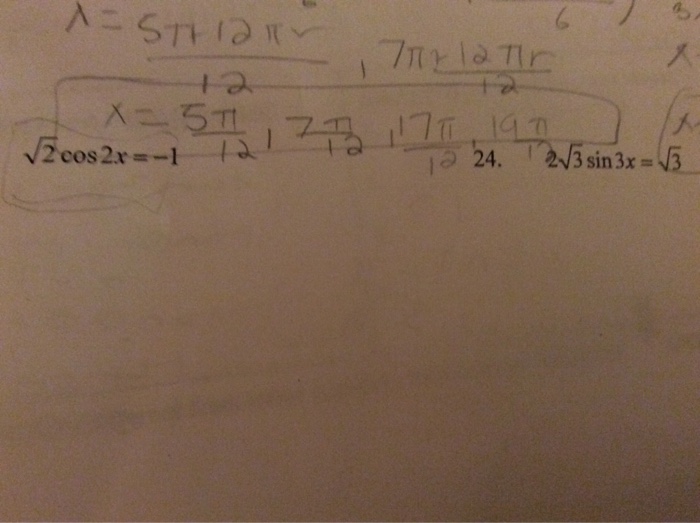 6 ) 3.
x = 5π+12πr / 12 , 7π+12πr / 12 x
x = 5π/12 , 7π/12 , 17π/12 , 19π/12
√2 cos 2x = −1 24. 2√3 sin 3x = √3